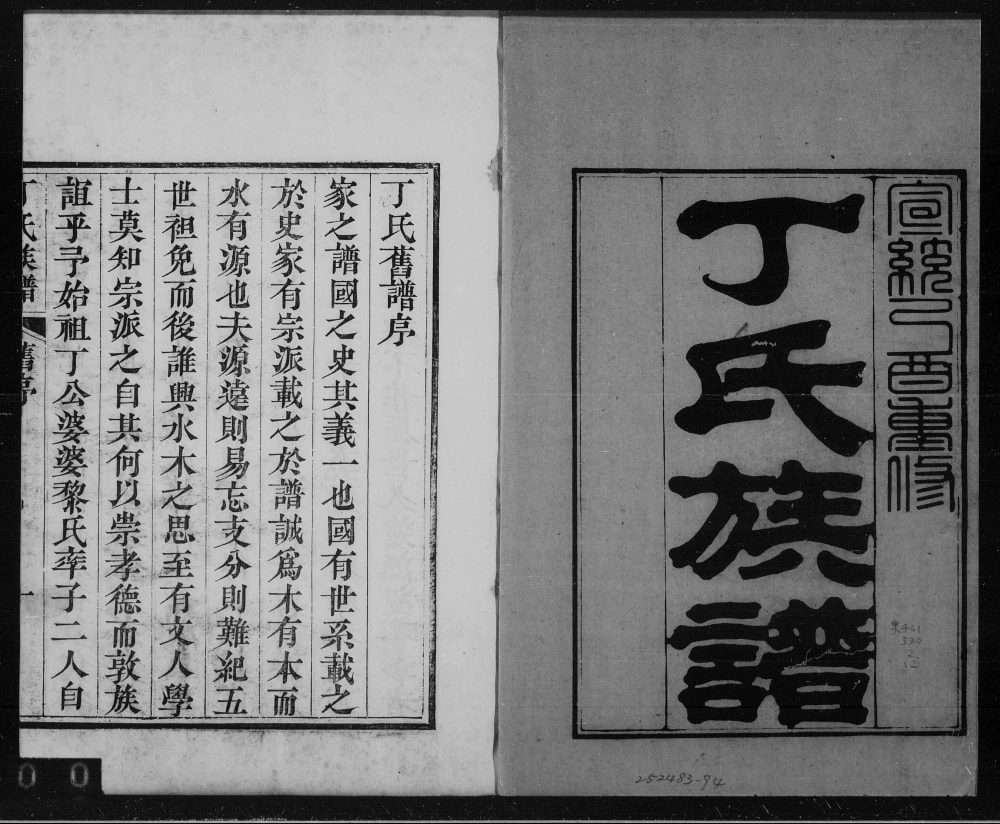 宣統己酉重修
丁氏族譜
丁氏舊譜序
家之譜國之史其義一也國有世系載之
於史家有宗派載之於譜誠爲木有本而
水有源也夫源遠則易忘支分則難紀五
世袒免而後誰興水木之思至有文人學
士莫知宗派之自其何以崇孝德而敦族
誼乎予始祖丁公婆婆黎氏率子二人自
丁氏族譜 舊序 一
252483-94
00